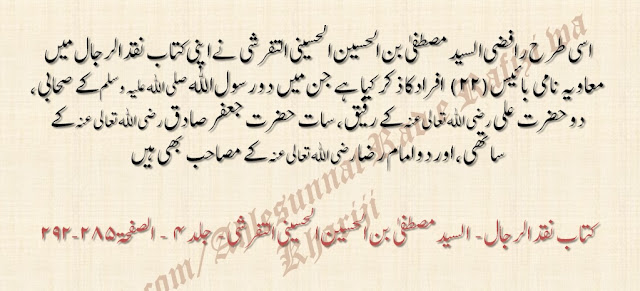 اسی طرح رافضی السید مصطفیٰ بن الحسین الحسینی التفرشی نے اپنی کتاب نقد الرجال میں
معاویہ نامی بائیس (۲۲) افراد کا ذکر کیا ہے جن میں دو رسول اللہ صلی اللہ علیہ وسلم کے صحابی،
دو حضرت علی رضی اللہ تعالیٰ عنہ کے رفیق، سات حضرت جعفر صادق رضی اللہ تعالیٰ عنہ کے
ساتھی، اور دو امام رضا رضی اللہ تعالیٰ عنہ کے مصاحب بھی ہیں
کتاب نقد الرجال۔ السید مصطفیٰ بن الحسین الحسینی التفرشی۔ جلد ۴ ۔ الصفحۃ ۲۸۵۔۲۹۲
.com/Ahlesunnat Ka
Khariji